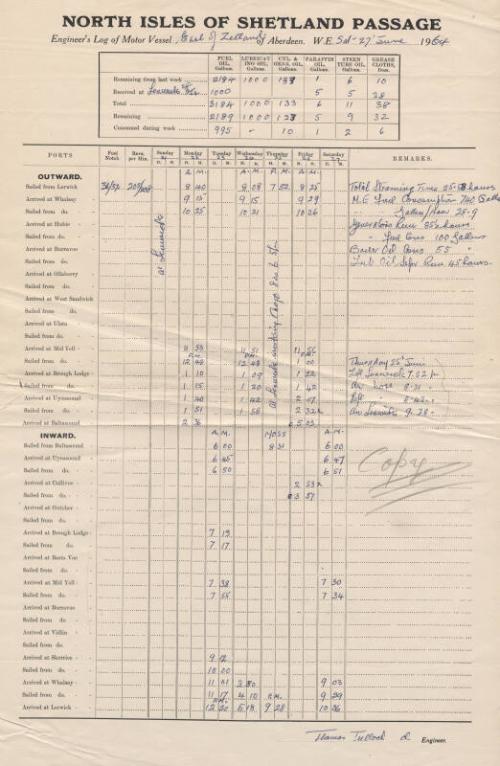 NORTH ISLES OF SHETLAND PASSAGE
Engineer's Log of Motor Vessel Earl of Zetland of Aberdeen. W.E. Sat-27 June 1964
FUEL OIL, Gallons. LUBRICATING OIL, Gallons. CYL. & GENL. OIL, Gallons. PARAFFIN OIL, Gallons. STEEN TUBE OIL, Gallons. GREASE CLOTHS, Doz.
Remaining from last week 2184 1000 133 1 6 10
Received at Lerwick 1000 5 5 28
Total 3184 1000 133 6 11 38
Remaining 2189 1000 123 5 9 32
Consumed during week 995 - 10 1 2 6
PORTS Fuel Notch Revs. per Min. Sunday 21 Monday 22 Tuesday 23 Wednesday 24 Thursday 25 Friday 26 Saturday 27 REMARKS.
H. M. H. M. H. M. H. M. H. M. H. M. H. M.
OUTWARD. A.M. A.M. P.M. A.M.
Sailed from Lerwick 8 40 8 08 7 52 8 25
Arrived at Whalsay 9 15 9 15 9 29
Sailed from do. 10 25 10 21 10 26
Arrived at Hubie
Sailed from do.
Arrived at Burravoe
Sailed from do.
Arrived at Ollaberry
Sailed from do.
Arrived at West Sandwick
Sailed from do.
Arrived at Ulsta
Sailed from do.
Arrived at Mid Yell 11 51 11 56
Sailed from do. 12 48 12 43 1 00
Arrived at Brough Lodge 1 10 1 09 1 22
Sailed from do. 1 15 1 20 1 42
Arrived at Uyeasound 1 40 1 42 2 07
Sailed from do. 1 51 1 58 2 32
Arrived at Baltasound 2 36 5 03
at Lerwick
at Lerwick working Cargo
Total Steaming Time
M.E. Fuel Consumption 740 Gallons
" " Gallons/Hour 25.9
Generators Run 85½ hours
" Fuel Cons 100 Gallons
Boiler Oil Cons 55 "
Lub Oil Sepr Run 45 hours
Thursday 25th June
Left Lerwick 7.52 p.
Arr Noss 8.31 "
Left "
Arr Lerwick 9.28 "
INWARD. A.M. NOSS A.M.
Sailed from Baltasound 6 00 8 31 6 00
Arrived at Uyeasound 6 45 6 47
Sailed from do. 6 50 6 51
Arrived at Cullivoe 2 53
Sailed from do. 3 57
Arrived at Gutcher
Sailed from do.
Arrived at Brough Lodge 7 13
Sailed from do. 7 17
Arrived at Basta Voe
Sailed from do.
Arrived at Mid Yell 7 38 7 30
Sailed from do. 7 55 7 34
Arrived at Burravoe
Sailed from do.
Arrived at Vidlin
Sailed from do.
Arrived at Skerries 9 12
Sailed from do. 10 00
Arrived at Whalsay 11 01 3 20 9 03
Sailed from do. 11 17 4 10 P.M. 9 29
Arrived at Lerwick 12 20 5 18 9 28 10 26
Copy
Thomas Tulloch Engineer.